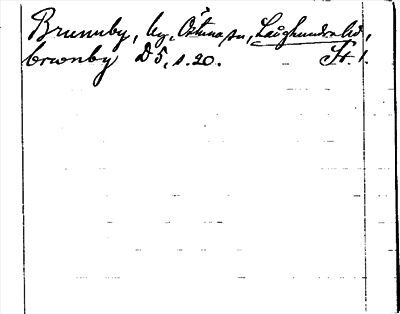 Brunnby, by, Östuna sn, Långhundra hd,
brwnby D5, s. 20. St. 1.